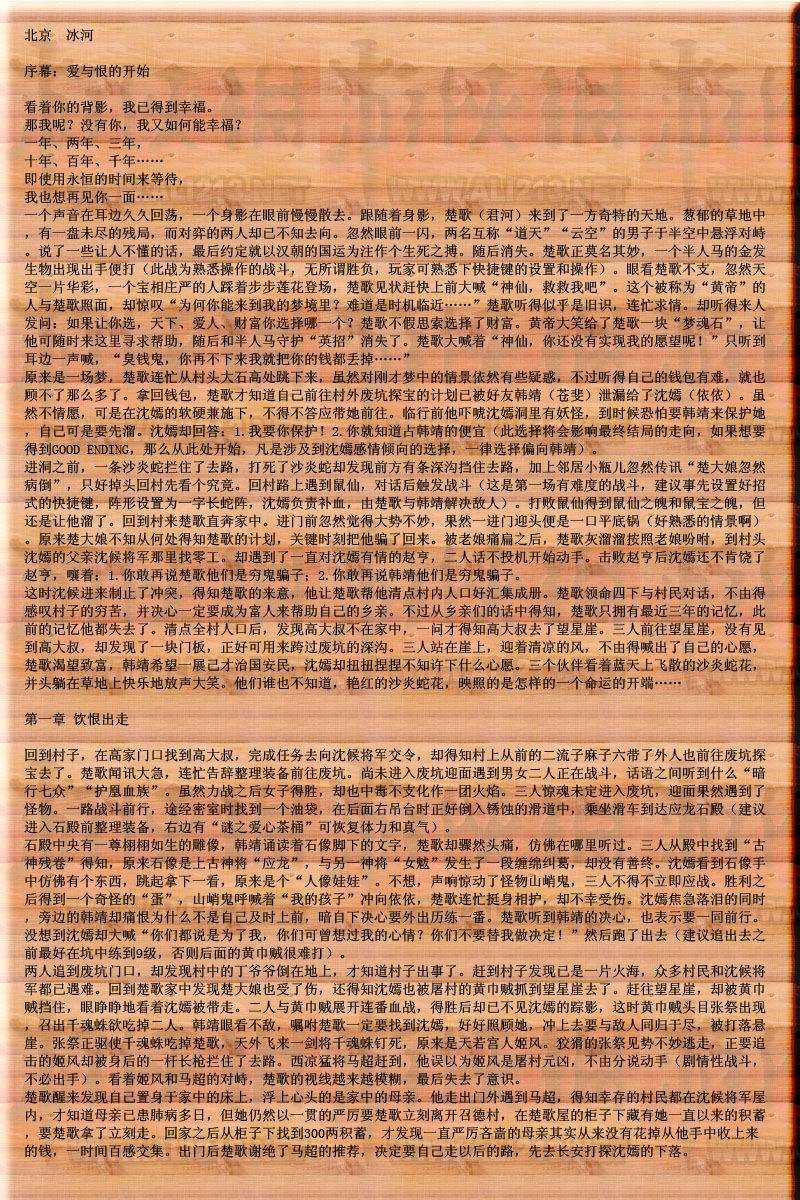 北京　冰河
序幕：爱与恨的开始
看着你的背影，我已得到幸福。
那我呢？没有你，我又如何能幸福？
一年、两年、三年，
十年、百年、千年……
即使用永恒的时间来等待，
我也想再见你一面……
一个声音在耳边久久回荡，一个身影在眼前慢慢散去。跟随着身影，楚歌（君河）来到了一方奇特的天地。葱郁的草地中
，有一盘未尽的残局，而对弈的两人却已不知去向。忽然眼前一闪，两名互称“道天”“云空”的男子于半空中悬浮对峙
。说了一些让人不懂的话，最后约定就以汉朝的国运为注作个生死之搏。随后消失。楚歌正莫名其妙，一个半人马的金发
生物出现出手便打（此战为熟悉操作的战斗，无所谓胜负，玩家可熟悉下快捷键的设置和操作）。眼看楚歌不支，忽然天
空一片华彩，一个宝相庄严的人踩着步步莲花登场，楚歌见状赶快上前大喊“神仙，救救我吧”。这个被称为“黄帝”的
人与楚歌照面，却惊叹“为何你能来到我的梦境里？难道是时机临近……”楚歌听得似乎是旧识，连忙求情。却听得来人
发问：如果让你选，天下、爱人、财富你选择哪一个？楚歌不假思索选择了财富。黄帝大笑给了楚歌一块“梦魂石”，让
他可随时来这里寻求帮助，随后和半人马守护“英招”消失了。楚歌大喊着“神仙，你还没有实现我的愿望呢！”只听到
耳边一声喊，“臭钱鬼，你再不下来我就把你的钱都丢掉……”
原来是一场梦，楚歌连忙从村头大石高处跳下来，虽然对刚才梦中的情景依然有些疑惑，不过听得自己的钱包有难，就也
顾不了那么多了。拿回钱包，楚歌才知道自己前往村外废坑探宝的计划已被好友韩靖（苍斐）泄漏给了沈嫣（依依）。虽
然不情愿，可是在沈嫣的软硬兼施下，不得不答应带她前往。临行前他吓唬沈嫣洞里有妖怪，到时候恐怕要韩靖来保护她
，自己可是要先溜。沈嫣却回答：1.我要你保护！2.你就知道占韩靖的便宜（此选择将会影响最终结局的走向，如果想要
得到GOOD ENDING，那么从此处开始，凡是涉及到沈嫣感情倾向的选择，一律选择偏向韩靖）。
进洞之前，一条沙炎蛇拦住了去路，打死了沙炎蛇却发现前方有条深沟挡住去路，加上邻居小瓶儿忽然传讯“楚大娘忽然
病倒”，只好掉头回村先看个究竟。回村路上遇到鼠仙，对话后触发战斗（这是第一场有难度的战斗，建议事先设置好招
式的快捷键，阵形设置为一字长蛇阵，沈嫣负责补血，由楚歌与韩靖解决敌人）。打败鼠仙得到鼠仙之魄和鼠宝之魄，但
还是让他溜了。回到村来楚歌直奔家中。进门前忽然觉得大势不妙，果然一进门迎头便是一口平底锅（好熟悉的情景啊）
。原来楚大娘不知从何处得知楚歌的计划，关键时刻把他骗了回来。被老娘痛扁之后，楚歌灰溜溜按照老娘吩咐，到村头
沈嫣的父亲沈候将军那里找零工。却遇到了一直对沈嫣有情的赵亨，二人话不投机开始动手。击败赵亨后沈嫣还不肯饶了
赵亨，嚷着：1.你敢再说楚歌他们是穷鬼骗子；2.你敢再说韩靖他们是穷鬼骗子。
这时沈候进来制止了冲突，得知楚歌的来意，他让楚歌帮他清点村内人口好汇集成册。楚歌领命四下与村民对话，不由得
感叹村子的穷苦，并决心一定要成为富人来帮助自己的乡亲。不过从乡亲们的话中得知，楚歌只拥有最近三年的记忆，此
前的记忆他都失去了。清点全村人口后，发现高大叔不在家中，一问才得知高大叔去了望星崖。三人前往望星崖，没有见
到高大叔，却发现了一块门板，正好可用来跨过废坑的深沟。三人站在崖上，迎着清凉的风，不由得喊出了自己的心愿，
楚歌渴望致富，韩靖希望一展己才治国安民，沈嫣却扭扭捏捏不知许下什么心愿。三个伙伴看着蓝天上飞散的沙炎蛇花，
并头躺在草地上快乐地放声大笑。他们谁也不知道，艳红的沙炎蛇花，映照的是怎样的一个命运的开端……
第一章 饮恨出走
回到村子，在高家门口找到高大叔，完成任务去向沈候将军交令，却得知村上从前的二流子麻子六带了外人也前往废坑探
宝去了。楚歌闻讯大急，连忙告辞整理装备前往废坑。尚未进入废坑迎面遇到男女二人正在战斗，话语之间听到什么“暗
行七众”“护凰血族”。虽然力战之后女子得胜，却也中毒不支化作一团火焰。三人惊魂未定进入废坑，迎面果然遇到了
怪物。一路战斗前行，途经密室时找到一个油袋，在后面右吊台时正好倒入锈蚀的滑道中，乘坐滑车到达应龙石殿（建议
进入石殿前整理装备，右边有“谜之爱心茶桶”可恢复体力和真气）。
石殿中央有一尊栩栩如生的雕像，韩靖诵读着石像脚下的文字，楚歌却骤然头痛，仿佛在哪里听过。三人从殿中找到“古
神残卷”得知，原来石像是上古神将“应龙”，与另一神将“女魃”发生了一段缠绵纠葛，却没有善终。沈嫣看到石像手
中仿佛有个东西，跳起拿下一看，原来是个“人像娃娃”。不想，声响惊动了怪物山峭鬼，三人不得不立即应战。胜利之
后得到一个奇怪的“蛋”，山峭鬼呼喊着“我的孩子”冲向依依，楚歌连忙挺身相护，却不幸受伤。沈嫣焦急落泪的同时
，旁边的韩靖却痛恨为什么不是自己及时上前，暗自下决心要外出历练一番。楚歌听到韩靖的决心，也表示要一同前行。
没想到沈嫣却大喊“你们都说是为了我，你们可曾想过我的心情？你们不要替我做决定！”然后跑了出去（建议追出去之
前最好在坑中练到9级，否则后面的黄巾贼很难打）。
两人追到废坑门口，却发现村中的丁爷爷倒在地上，才知道村子出事了。赶到村子发现已是一片火海，众多村民和沈候将
军都已遇难。回到楚歌家中发现楚大娘也受了伤，还得知沈嫣也被屠村的黄巾贼抓到望星崖去了。赶往望星崖，却被黄巾
贼挡住，眼睁睁地看着沈嫣被带走。二人与黄巾贼展开连番血战，得胜后却已不见沈嫣的踪影，这时黄巾贼头目张祭出现
，召出千魂蛛欲吃掉二人。韩靖眼看不敌，嘱咐楚歌一定要找到沈嫣，好好照顾她，冲上去要与敌人同归于尽，被打落悬
崖。张祭正驱使千魂蛛吃掉楚歌，天外飞来一剑将千魂蛛钉死，原来是天若宫人姬风。狡猾的张祭见势不妙逃走，正要追
击的姬风却被身后的一杆长枪拦住了去路。西凉猛将马超赶到，他误以为姬风是屠村元凶，不由分说动手（剧情性战斗，
不必出手）。看着姬风和马超的对峙，楚歌的视线越来越模糊，最后失去了意识。
楚歌醒来发现自己置身于家中的床上，浮上心头的是家中的母亲。他走出门外遇到马超，得知幸存的村民都在沈候将军屋
内，才知道母亲已患肺病多日，但她仍然以一贯的严厉要楚歌立刻离开召德村，在楚歌屋的柜子下藏有她一直以来的积蓄
，要楚歌拿了立刻走。回家之后从柜子下找到300两积蓄，才发现一直严厉吝啬的母亲其实从来没有花掉从他手中收上来
的钱，一时间百感交集。出门后楚歌谢绝了马超的推荐，决定要自己走以后的路，先去长安打探沈嫣的下落。